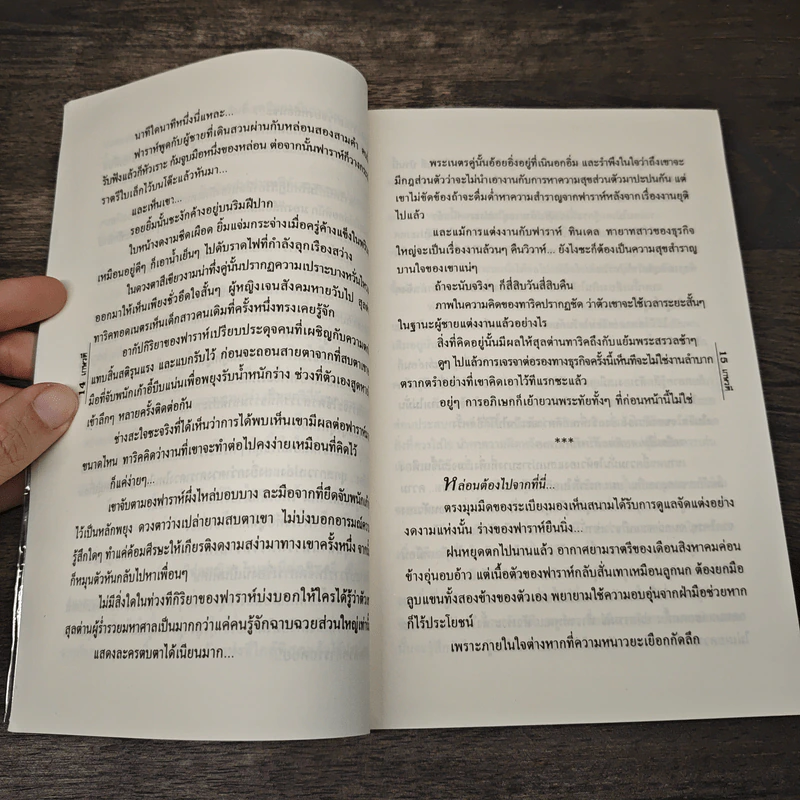 นาทีใดนาทีหนึ่งนี่แหละ...
ฟาราห์พูดกับผู้ชายที่เดินสวนผ่านกับหล่อนสองสามคำ
รับฟังแล้วก็หัวเราะ ก้มจูบมือหนึ่งของหล่อน ต่อจากนั้นฟาราห์ก็วาง
ราตรีใบเล็กไว้บนโต๊ะแล้วหันมา...
และเห็นเขา...
รอยยิ้มนั้นชะงักค้างอยู่บนริมฝีปาก
ใบหน้างดงามซีดเผือด ยิ้มแจ่มกระจ่างเมื่อครู่ค้างแข็งใน
เหมือนอยู่ดีๆ ก็เอาน้ำเย็นๆ ไปดับราดไฟที่กำลังลุกเรืองสว่าง
ในดวงตาสีเขียวงามน่าทึ่งคู่นั้นปรากฏความเปราะบางหวั่นไหว
ออกมาให้เห็นเพียงชั่วอึดใจสั้นๆ ผู้หญิงเจนสังคมหายวับไป
ทาริคทอดเนตรเห็นเด็กสาวคนเดิมที่ครั้งหนึ่งทรงเคยรู้จัก
อากัปกิริยาของฟาราห์เปรียบประดุจคนที่เผชิญกับความ
แทบสิ้นสติรุนแรง และแบกรับไว้ ก่อนจะถอนสายตาจากที่สบตาเขา
มือที่จับพนักเก้าอี้บีบแน่นเพื่อพยุงรับน้ำหนักร่าง ช่วงที่ตัวเองสูด
เข้าลึกๆ หลายครั้งติดต่อกัน
ช่างสะใจซะจริงที่ได้เห็นว่าการได้พบเห็นเขามีผลต่อฟาราห์
ขนาดไหน ทาริคคิดว่างานที่เขาจะทำต่อไปคงง่ายเหมือนที่คิดไว้
ก็แค่ง่ายๆ...
เขาจับตามองฟาราห์ผึ่งไหล่บอบบาง ละมือจากที่ยึดจับพนัก
ไว้เป็นหลักพยุง ดวงตาว่างเปล่ายามสบตาเขา ไม่บ่งบอกอารมณ์
รู้สึกใดๆ ทำแค่ค้อมศีรษะให้เกียรติงดงามสง่ามาทางเขาครั้งหนึ่ง
ก็หมุนตัวหันกลับไปหาเพื่อนๆ
ไม่มีสิ่งใดในท่วงทีกิริยาของฟาราห์บ่งบอกให้ใครได้รู้ว่า
สุลต่านผู้ร่ำรวยมหาศาลเป็นมากกว่าแค่คนรู้จักฉาบฉวยส่วนใหญ่
แสดงละครตบตาได้เนียนมาก...
14 เกษวดี
พระเนตรคู่นั้นอ้อยอิ่งอยู่ที่เนินอกอิ่ม และรำพึงในใจว่าถึงเขาจะ
มีกฎส่วนตัวว่าจะไม่นำเอางานกับการหาความสุขส่วนตัวมาปะปนกัน แต่
เขาไม่ขัดข้องถ้าจะดื่มด่ำหาความสำราญจากฟาราห์หลังจากเรื่องงานยุติ
ไปแล้ว
และแม้การแต่งงานกับฟาราห์ ทินเดล ทายาทสาวของธุรกิจ
ใหญ่จะเป็นเรื่องงานล้วนๆ คืนวิวาห์... ยังไงซะก็ต้องเป็นความสุขสำราญ
บานใจของเขาแน่ๆ
ถ้าจะนับจริงๆ ก็สี่สิบวันสี่สิบคืน
ภาพในความคิดของทาริคปรากฏชัด ว่าตัวเขาจะใช้เวลาระยะสั้นๆ
ในฐานะผู้ชายแต่งงานแล้วอย่างไร
สิ่งที่คิดอยู่นั้นมีผลให้สุลต่านทาริคถึงกับแย้มพระสรวลช้าๆ
ดูๆ ไปแล้วการเจรจาต่อรองทางธุรกิจครั้งนี้เห็นทีจะไม่ใช่งานลำบาก
ตรากตรำอย่างที่เขาคิดเอาไว้ทีแรกซะแล้ว
อยู่ๆ การอภิเษกก็เย้ายวนพระทัยทั้งๆ ที่ก่อนหน้านี้ไม่ใช่
***
หล่อนต้องไปจากที่นี่...
ตรงมุมมืดของระเบียงมองเห็นสนามได้รับการดูแลจัดแต่งอย่าง
งดงามแห่งนั้น ร่างของฟาราห์ยืนนิ่ง...
ฝนหยุดตกไปนานแล้ว อากาศยามราตรีของเดือนสิงหาคมค่อน
ข้างอุ่นอบอ้าว แต่เนื้อตัวของฟาราห์กลับสั่นเทาเหมือนลูกนก ต้องยกมือ
ลูบแขนทั้งสองข้างของตัวเอง พยายามใช้ความอบอุ่นจากฝ่ามือช่วยหาก
ก็ไร้ประโยชน์
เพราะภายในใจต่างหากที่ความหนาวยะเยือกกัดลึก
15 เกษวดี